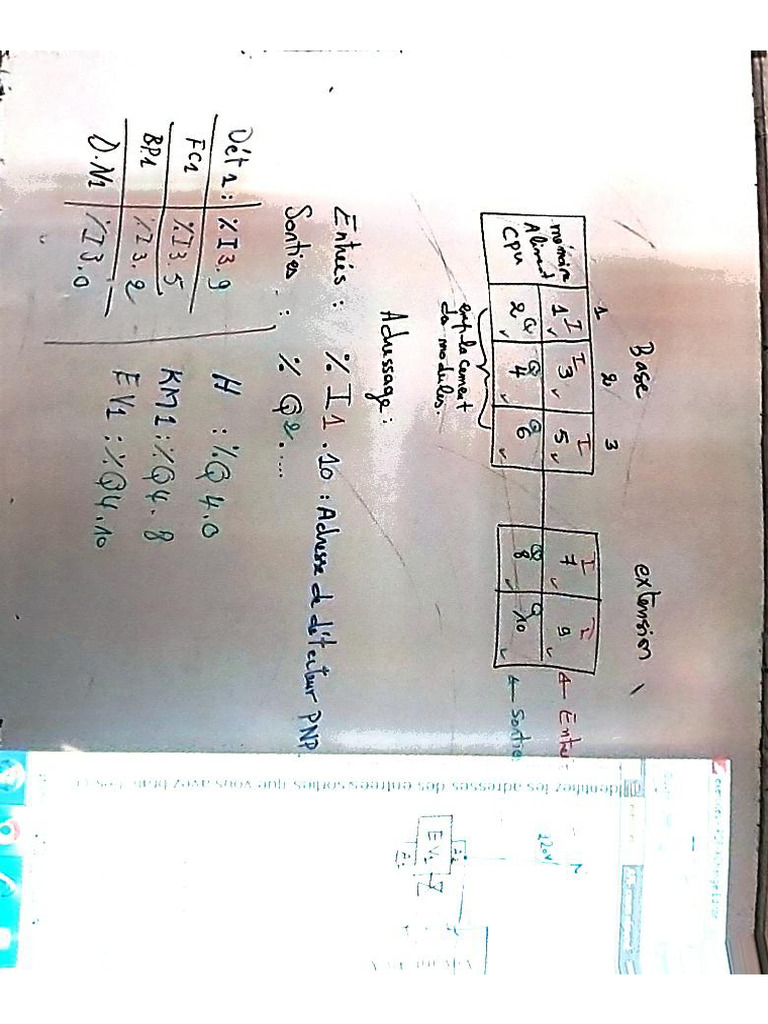 Base extension
1 2 3
mémoire
Aliment
CPU
I I I I I
1 3 5 7 9 ← Entrée
Q Q Q Q Q
2 4 6 8 10 ← Sortie
emplacement
do modules.
Adressage :
Entrées : % I 1 . 10 : Adresse de détecteur PNP
Sorties : % Q 2 . ....
Dét 1 : % I 3.9 H : % Q 4.0
FC1 % I 3.5 KM1 : % Q 4.8
BP1 % I 3.2 EV1 : % Q 4.10
D.N1 % I 3.0
Identifiez les adresses des entrées sorties que vous avez
220V
EV1